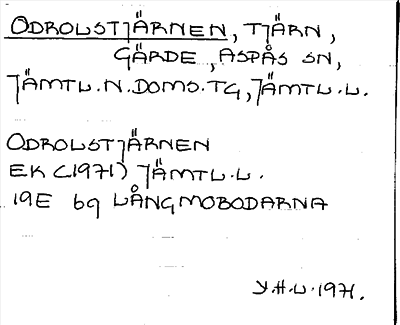 ODROLSTJÄRNEN, TJÄRN,
GÄRDE, ASPÅS SN,
JÄMTL.N.DOMS.TG, JÄMTL.L.
ODROLSTJÄRNEN
EK (1971) JÄMTL.L.
19E 6g LÅNGMOBODARNA
Y.H.L. 1971.